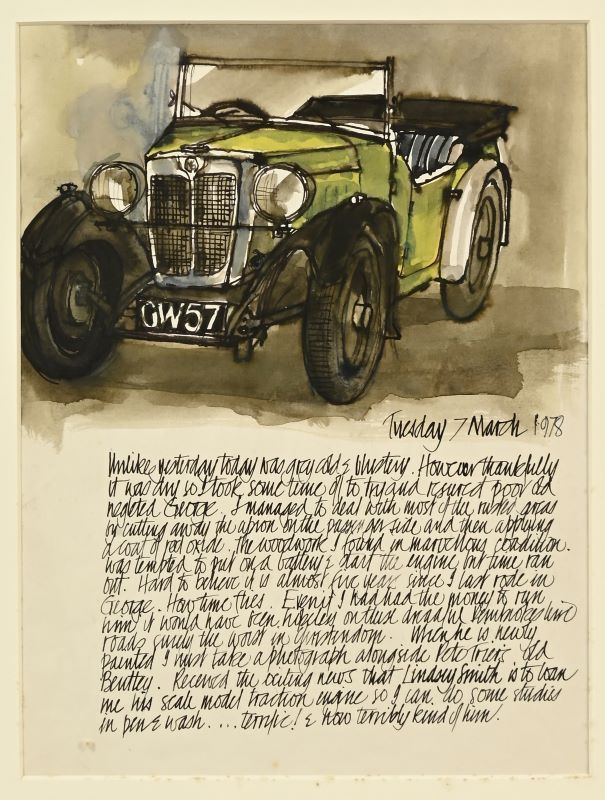 MG
GW57
Tuesday 7 March 1978
Unlike yesterday today was grey cold & blustery. However thankfully
it was dry so I took some time off to try and resurect poor old
neglected George. I managed to deal with most of the rusted areas
by cutting away the apron on the passenger side and then applying
a coat of red oxide. The woodwork I found in marvellous condition.
Was tempted to put on a battery & start the engine but time ran
out. Hard to believe it is almost five years since I last rode in
George. How time flies. Even if I had had the money to run
him it would have been hopeless on these dreadful Pembrokeshire
roads surely the worst in Christendom. When he is newly
painted I must take a photograph alongside Pete Trier's old
Bentley. Received the exciting news that Lindsey Smith is to loan
me his scale model traction engine so I can do some studies
in pen & wash. ... terrific! & how terribly kind of him.